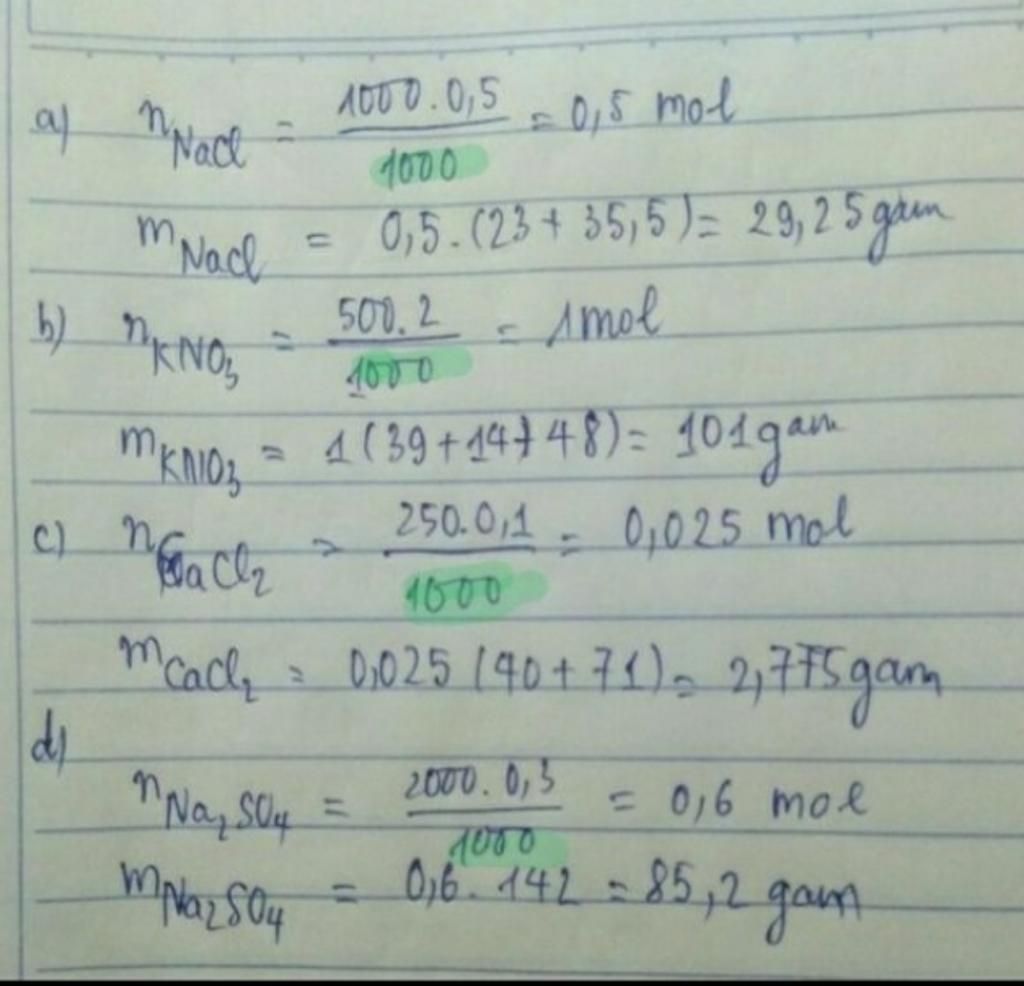 a) n NaCl = 1000.0,5 / 1000 = 0,5 mol
m NaCl = 0,5.(23+35,5)= 29,25 gam
b) n KNO3 = 500.2 / 1000 = 1 mol
m KNO3 = 1(39+14+48)= 101 gam
c) n CaCl2 = 250.0,1 / 1000 = 0,025 mol
m CaCl2 = 0,025 (40+71)= 2,775 gam
d)
n Na2SO4 = 2000.0,3 / 1000 = 0,6 mol
m Na2SO4 = 0,6.142 = 85,2 gam